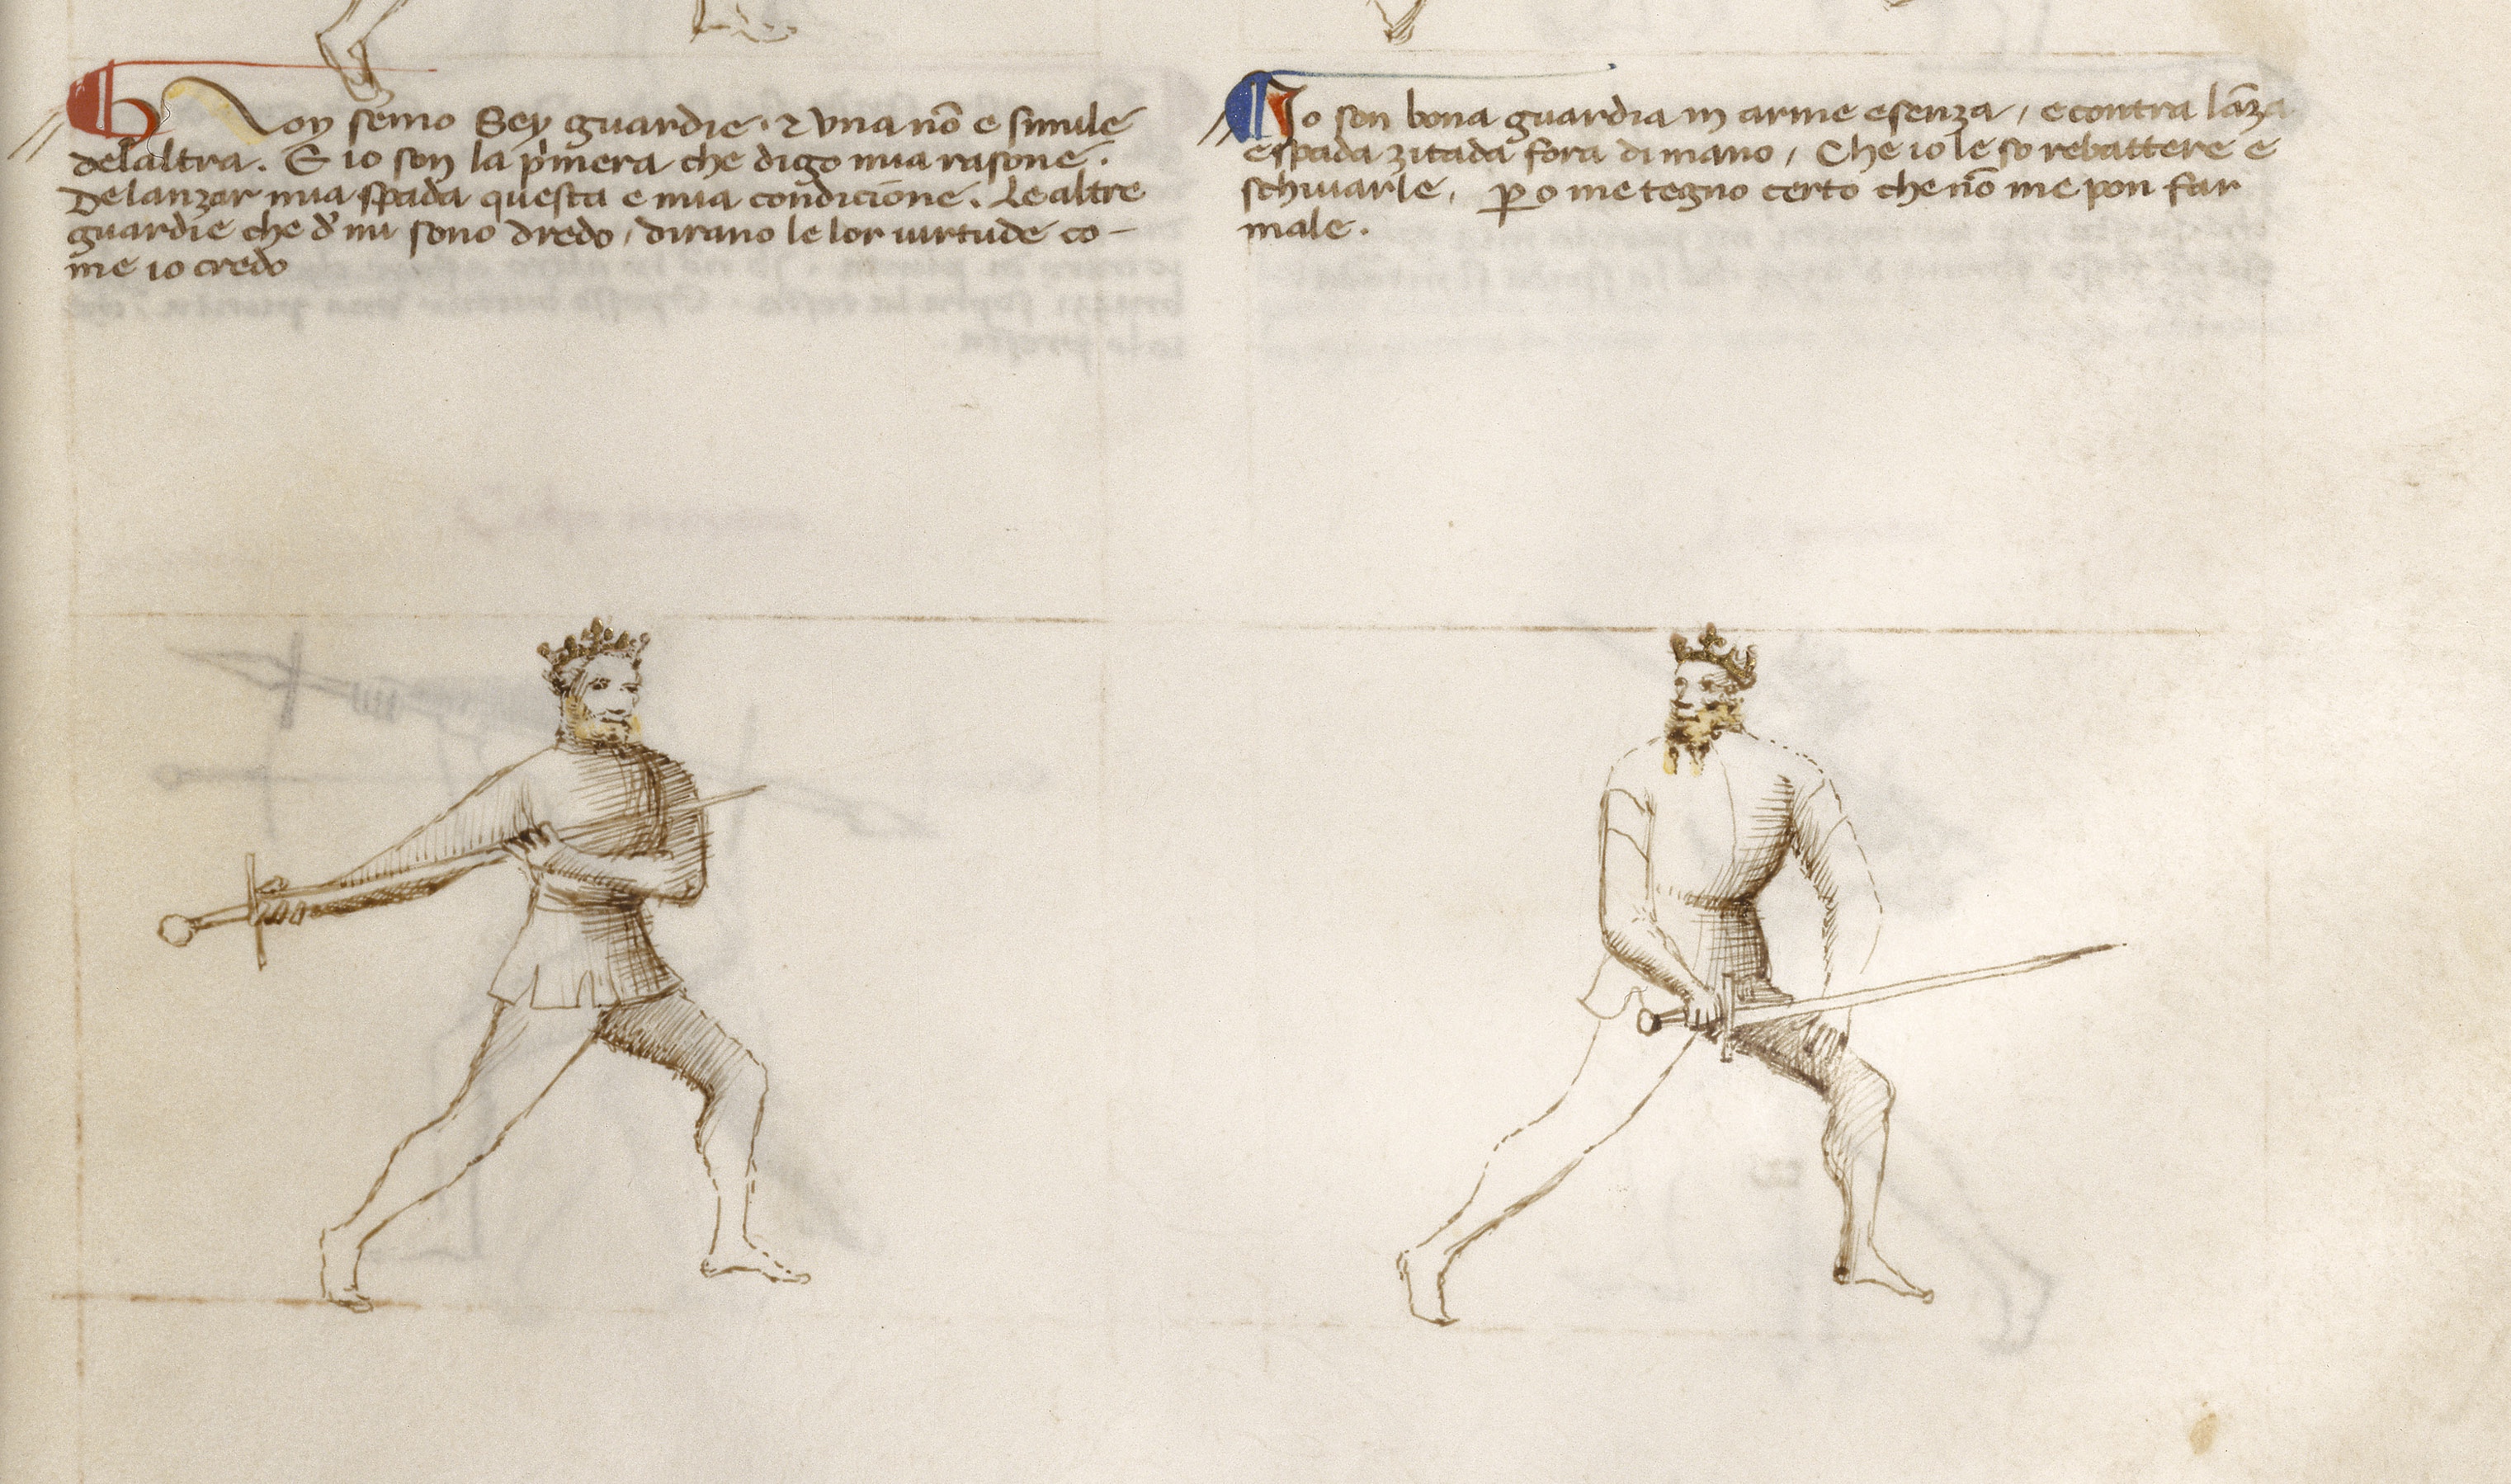 Noy semo Sey guardie. ⁊ vna nō e simile
delaltra. E io son la p̄mera che digo mia rasone.
De lanzar mia spada questa e mia condicione. Le altre
guardie che d' mi sono dredo, dirano le lor uirtude co-
me io credo
Io son bona guardia in arme e senza, e contra lāza
e spada zitada fora di mano, Che io le so rebattere e
schiuarle, p̱o me tegno certo che nō me pon far
male.